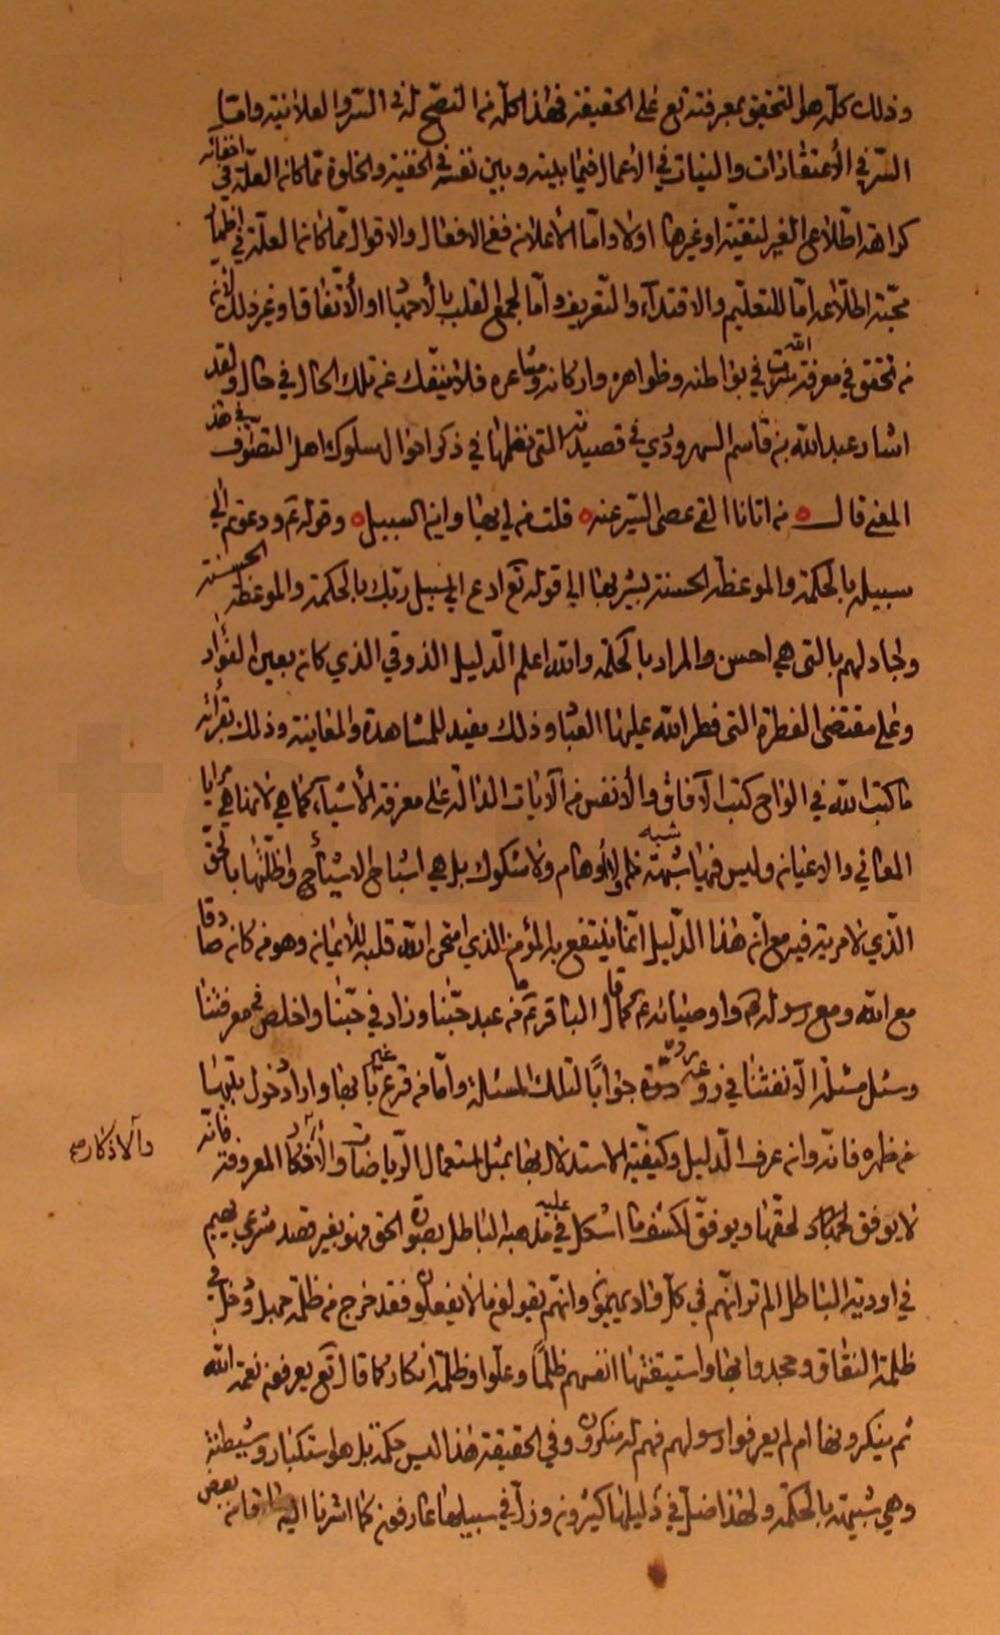 وذلك كلّه هو التحقيق بمعرفته تع على الحقيقة فهذا كلّه من النصح له في السرّ والعلانية وامّا
السّر في الأعتقادات والنيات في الاعمال فيما بينه وبين نفسه في الخفية والخلوة ممّا كانه العلّة في اخفائه
كراهة اطّلاع الغير لتقيّة او غيرها اولا وامّا الأعلان ففي الافعال والاقوال ممّا كانه العلّة في اظهار
محبّة اطلاعه امّا للتعليم والاقتداء والتعريف وامّا لجمع القلب بالأجماع او الأتّفاق او غير ذلك لأنه
من تحقق في معرفة الله سرت في بواطنه وظواهره واركانه ومشاعره فلا ينفك عن تلك الحال في حال ولقد
اشار عبدالله بن قاسم السهروردي في قصيدته التي نظمها في ذكر احوال سلوك اهل التصوف في هذ
المعنى قال من اتانا القى عصى السير عنه قلت من لي بها واين السبيل وقوله تم ودعوتم الى
سبيله بالحكمة والموعظة الحسنة يشير بها الى قوله تع ادع الى سبيل ربك بالحكمة والموعظة الحسنة
وجادلهم بالتي هي احسن والمراد بالحكمة والله اعلم الدليل الذوقي الذي كان بعين الفؤاد
وعلى مقتضى الفطرة التي فطر الله عليها العباد وذلك مفيد للمشاهدة والمعاينة وذلك بقرائة
ما كتب الله في الواح كتب الآفاق والأنفس من الآيات الدالّة على معرفة الأشياء كما هي لانها هي مرايا
المعاني والاعيان وليس فيها شبهة شبه ظلم ولا اوهام ولا شكوك بل هي اشباح الاشياح واظلّتها بالحقّ
الّذي لا مرية فيه مع انّ هذا الدّليل انّما ينتفع به المؤمن الذي امتحن الله قلبه للأيمان وهو من كان صادقا
مع الله ومع رسوله ص واوصيائه ع كما قال الباقر ع ما من عبد حبّنا وزاد في حبّنا واخلص في معرفتنا
وسئل مسئلة الّا نفثنا في روعه جوابًا لتلك المسئلة وامّا من قرع غير بابها واراد دخول بيتها
من ظهره فانّه وان عرف الدليل وكيفيّة الاستدلال بها بمثل استعمال الرّياضات والأفكار المعروفة فانّه
والاذكار صح
لا يوفق لحقّها ويوفق لكشف ما اشكل عليه في مذهبه الباطل بصورة الحق فهو بغير قصد شرعي يهيم
في اودية الباطل الم تر انّهم في كلّ واد يهيمون وانّهم يقولون ما لا يفعلون فقد خرج من ظلمة جهل ودخل في
ظلمة النفاق وجحدوا بها واستيقنتها انفسهم ظلمًا وعلّوا وظلمة انكار كما قال تع يعرفون نعمة الله
ثم ينكرونها ام لم يعرفوا رسولهم فهم له منكرون وفي الحقيقة هذا ليس حكمة بل هو استكبار وشيطنة
وهي شبيهة بالحكمة ولهذا ضل في دليلها كثيرون وزلّ في سبيلها عارفون كما اشرنا اليه فان بعض